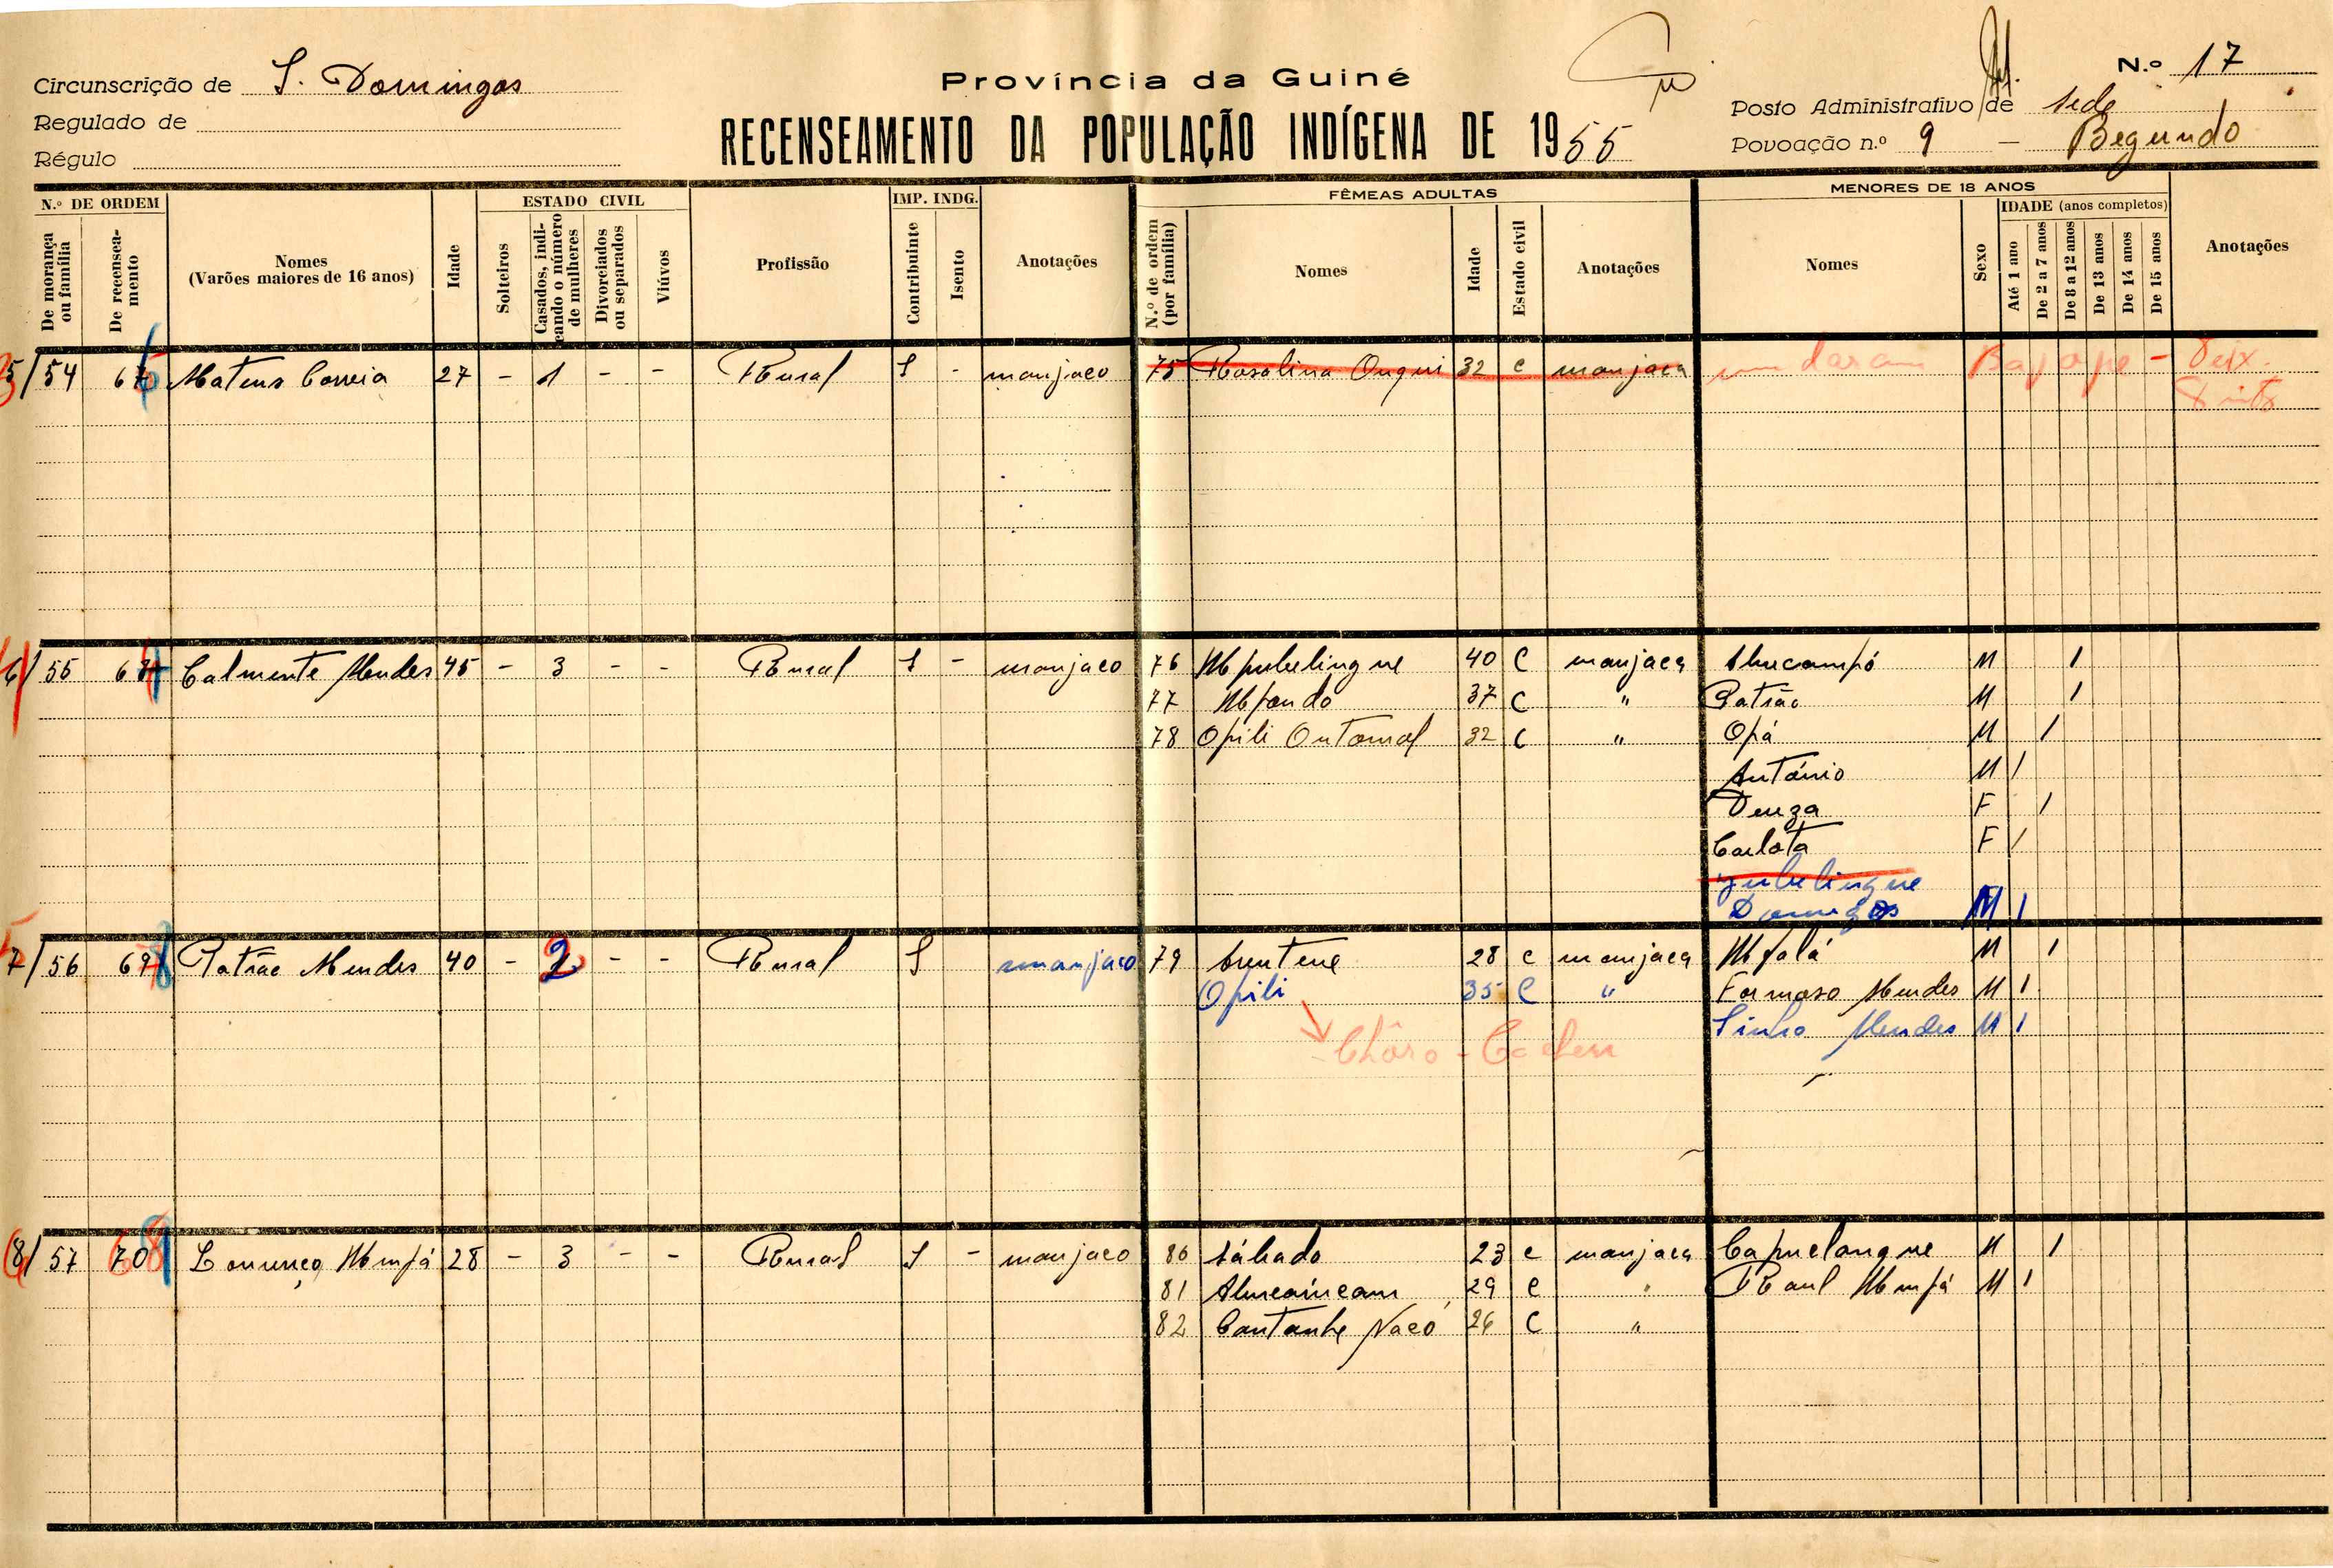 Circunscrição de S. Domingos
Regulado de
Régulo
Província da Guiné
RECENSEAMENTO DA POPULAÇÃO INDÍGENA DE 1955
N.º 17
Posto Administrativo de Sede
Povoação n.º 9 - Begundo
N.º DE ORDEM
De morança ou família
De recenseamento
Nomes
(Varões maiores de 16 anos)
Idade
ESTADO CIVIL
Solteiros
Casados, indicando o número de mulheres
Divorciados ou separados
Viúvos
Profissão
IMP. INDG.
Contribuinte
Isento
Anotações
FÊMEAS ADULTAS
N.º de ordem (por família)
Nomes
Idade
Estado civil
Anotações
MENORES DE 18 ANOS
Nomes
Sexo
IDADE (anos completos)
Até 1 ano
De 2 a 7 anos
De 8 a 12 anos
De 13 anos
De 14 anos
De 15 anos
Anotações
54 Mateus Correia 27 - 1 - - Rural S - manjaco 75 Rosalina Ouqui 32 C manjaca
55 Calmente Mendes 45 - 3 - - Rural S - manjaco 76 Mpubelingue 40 C manjaca Abucampó M 1
77 Mpondo 37 C " Patrão M 1
78 Opili Ontomal 32 C " Opá M 1
António M 1
Deuza F 1
Carlota F 1
Domingos M 1
56 Patrão Mendes 40 - 2 - - Rural S manjaco 79 28 C manjaca Mfalá M 1
Opili 35 C " Formoso Mendes M 1
Sinho Mendes M 1
Chôro -
57 70 Lourenço Mupá 28 - 3 - - Rural S - manjaco 80 Sábado 23 C manjaca Capuelangue M 1
81 29 C " Raul Mupá M 1
82 Cantanhe Nacó 26 C "